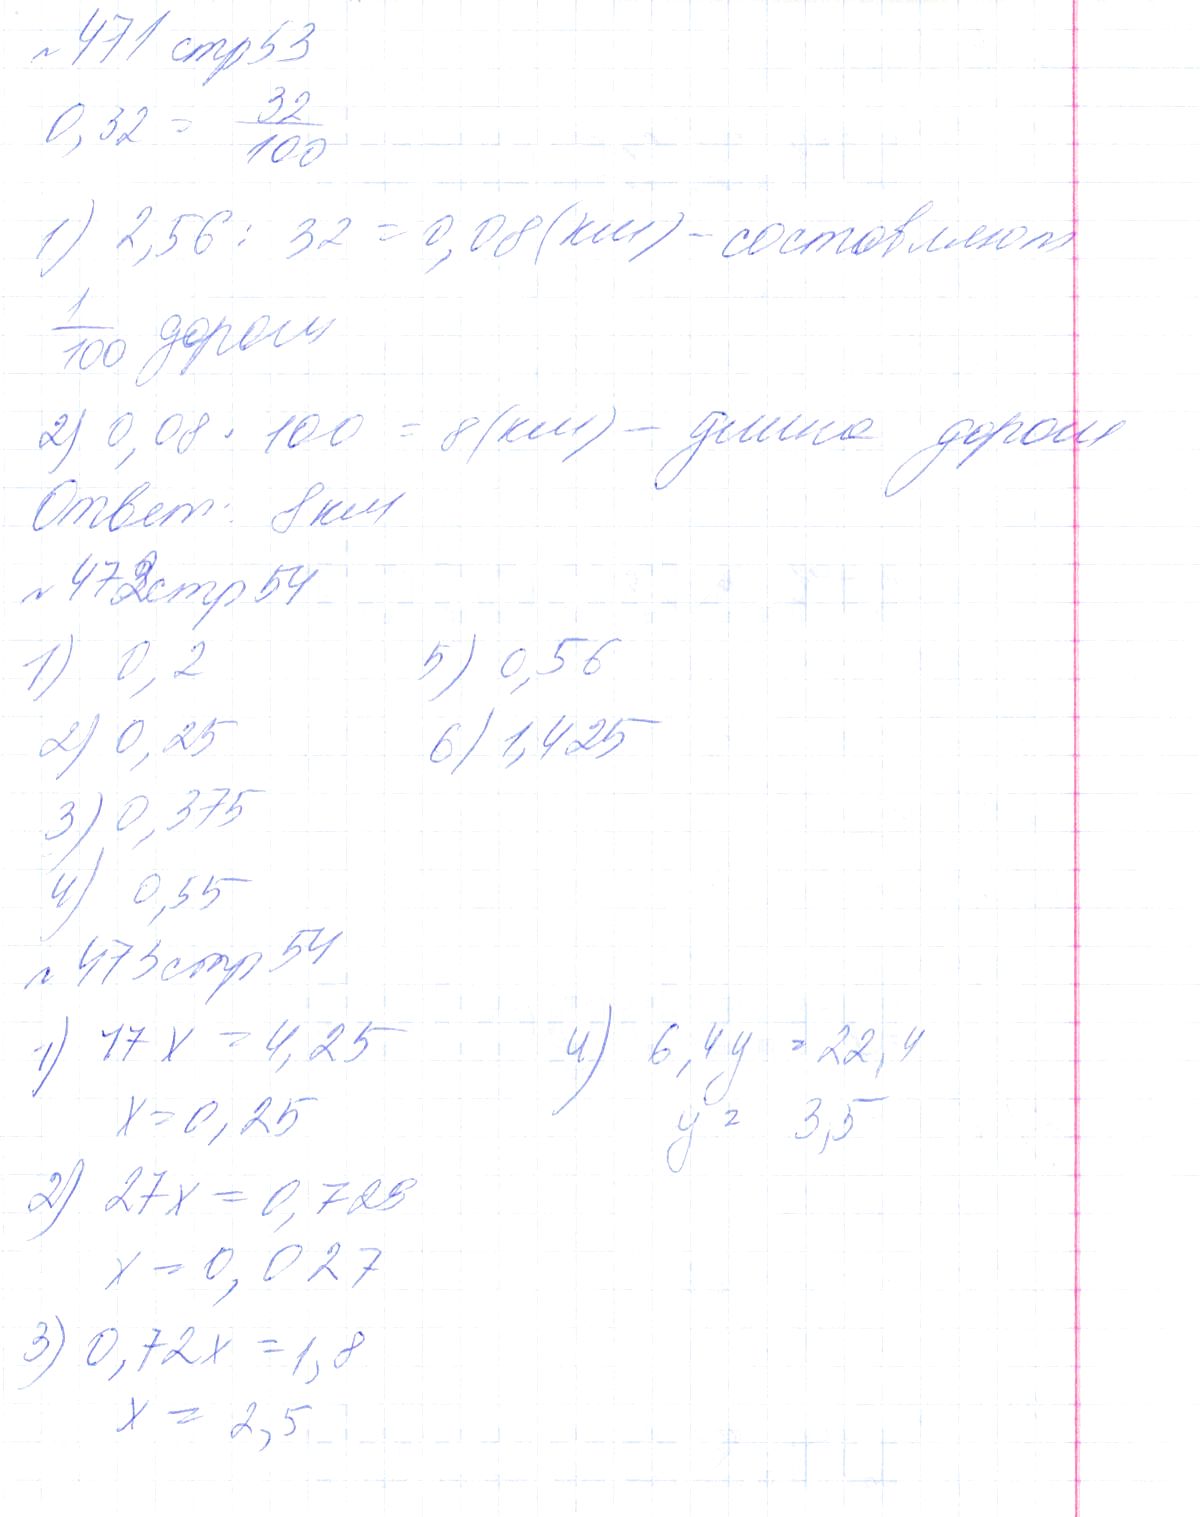 №471 стр53
0,32 = 32/100
1) 2,56 : 32 = 0,08(км) - составляют
1/100 дороги
2) 0,08 · 100 = 8(км) - длина дороги
Ответ: 8км
№472стр54
1) 0,2 5) 0,56
2) 0,25 6) 1,425
3) 0,375
4) 0,55
№473стр54
1) 17x = 4,25 4) 6,4y = 22,4
x = 0,25 y = 3,5
2) 27x = 0,729
x = 0,027
3) 0,72x = 1,8
x = 2,5